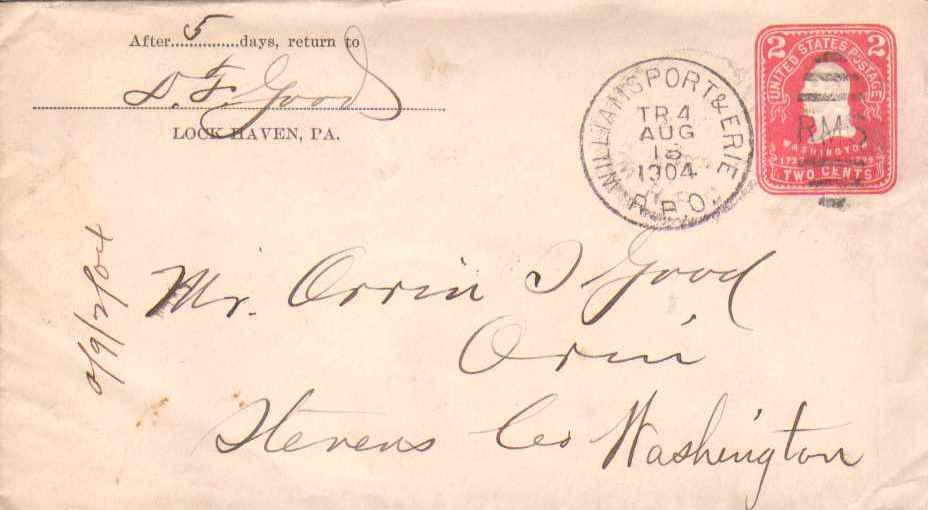 After 5 days, return to
D. F. Good
LOCK HAVEN, PA.
WILLIAMSPORT & ERIE
TR 4
AUG
18
1904
R.P.O.
2 2
UNITED STATES POSTAGE
RMS
WASHINGTON
TWO CENTS
Mr. Orrin S Good
Orin
Stevens Co Washington